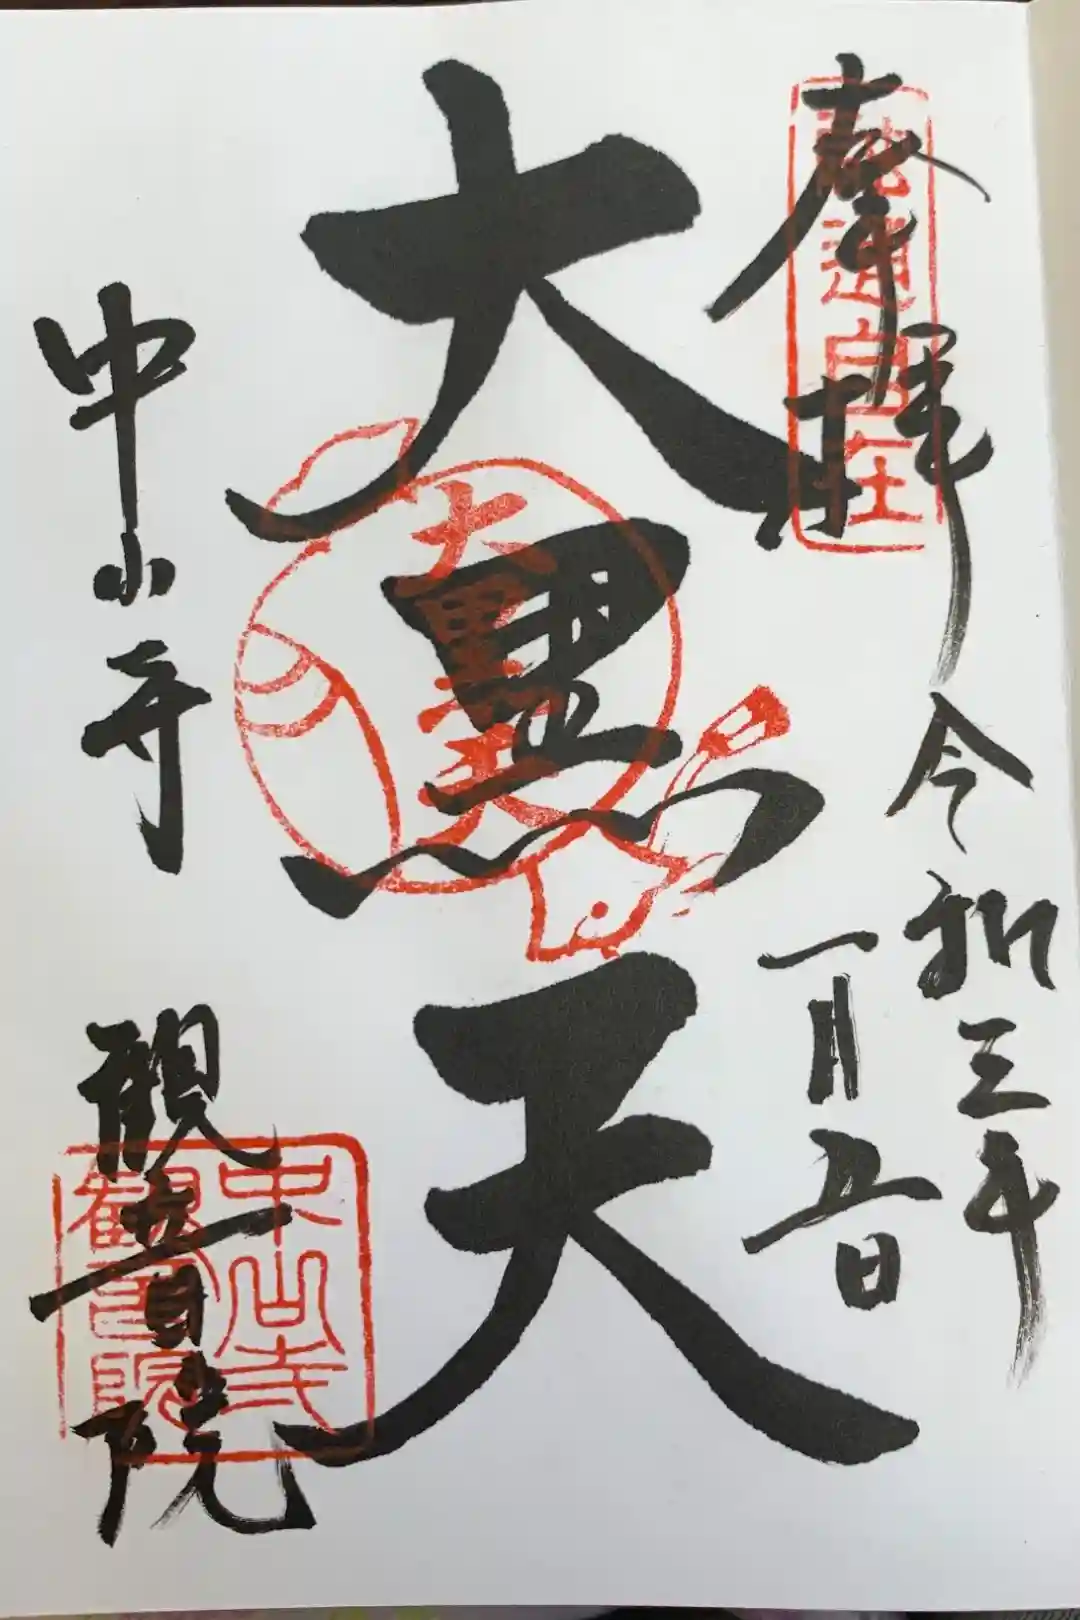 奉拝
令和三年
一月五日
大黒天
中山寺
観音院
融通自在
大黒天
中山寺
観音院